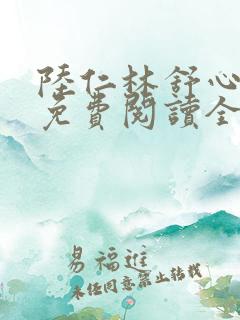 陸仁林舒心
免費閱讀全
易福進
未經同意禁止轉載